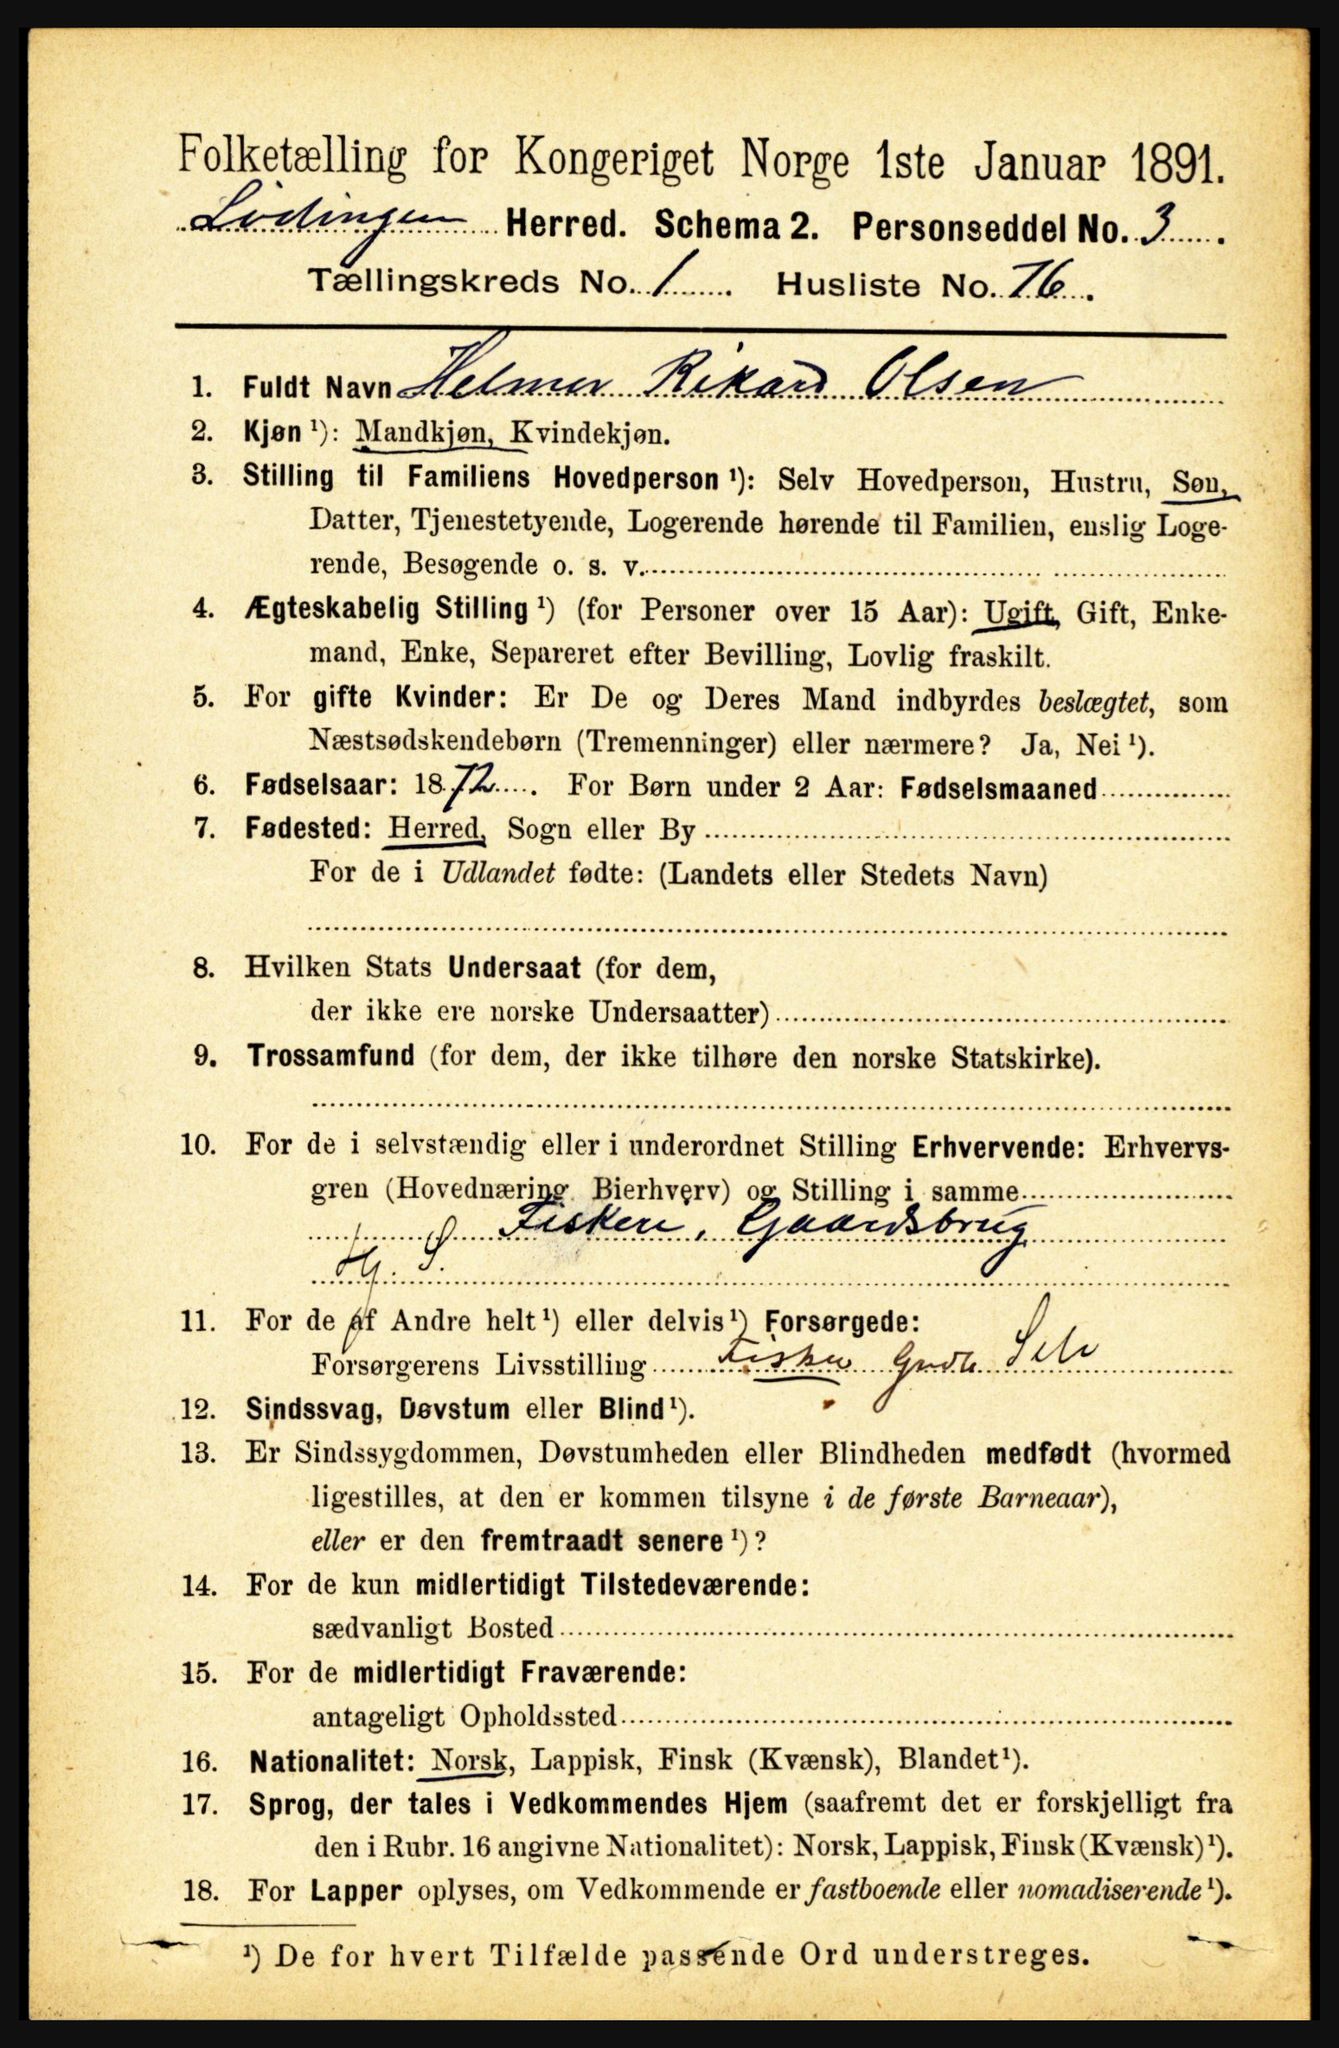 Folketælling for Kongeriget Norge 1ste Januar 1891.
Lødingen Herred. Schema 2. Personseddel No. 3.
Tællingskreds No. 1. Husliste No. 76.
1. Fuldt Navn Helmer Rikard Olsen
2. Kjøn ¹): Mandkjøn, Kvindekjøn.
3. Stilling til Familiens Hovedperson ¹): Selv Hovedperson, Hustru, Søn,
Datter, Tjenestetyende, Logerende hørende til Familien, enslig Loge-
rende, Besøgende o. s. v.
4. Ægteskabelig Stilling ¹) (for Personer over 15 Aar): Ugift, Gift, Enke-
mand, Enke, Separeret efter Bevilling, Lovlig fraskilt.
5. For gifte Kvinder: Er De og Deres Mand indbyrdes beslægtet, som
Næstsødskendebørn (Tremenninger) eller nærmere? Ja, Nei ¹).
6. Fødselsaar: 1872. For Børn under 2 Aar: Fødselsmaaned
7. Fødested: Herred, Sogn eller By
For de i Udlandet fødte: (Landets eller Stedets Navn)
8. Hvilken Stats Undersaat (for dem,
der ikke ere norske Undersaatter)
9. Trossamfund (for dem, der ikke tilhøre den norske Statskirke).
10. For de i selvstændig eller i underordnet Stilling Erhvervende: Erhvervs-
gren (Hovednæring Bierhverv) og Stilling i samme
Fiskeri, Gaardsbrug
Hj. S.
11. For de af Andre helt ¹) eller delvis ¹) Forsørgede:
Forsørgerens Livsstilling Fisker Selv
12. Sindssvag, Døvstum eller Blind ¹).
13. Er Sindssygdommen, Døvstumheden eller Blindheden medfødt (hvormed
ligestilles, at den er kommen tilsyne i de første Barneaar),
eller er den fremtraadt senere ¹)?
14. For de kun midlertidigt Tilstedeværende:
sædvanligt Bosted
15. For de midlertidigt Fraværende:
antageligt Opholdssted
16. Nationalitet: Norsk, Lappisk, Finsk (Kvænsk), Blandet ¹).
17. Sprog, der tales i Vedkommendes Hjem (saafremt det er forskjelligt fra
den i Rubr. 16 angivne Nationalitet): Norsk, Lappisk, Finsk (Kvænsk) ¹).
18. For Lapper oplyses, om Vedkommende er fastboende eller nomadiserende ¹).
¹) De for hvert Tilfælde passende Ord understreges.